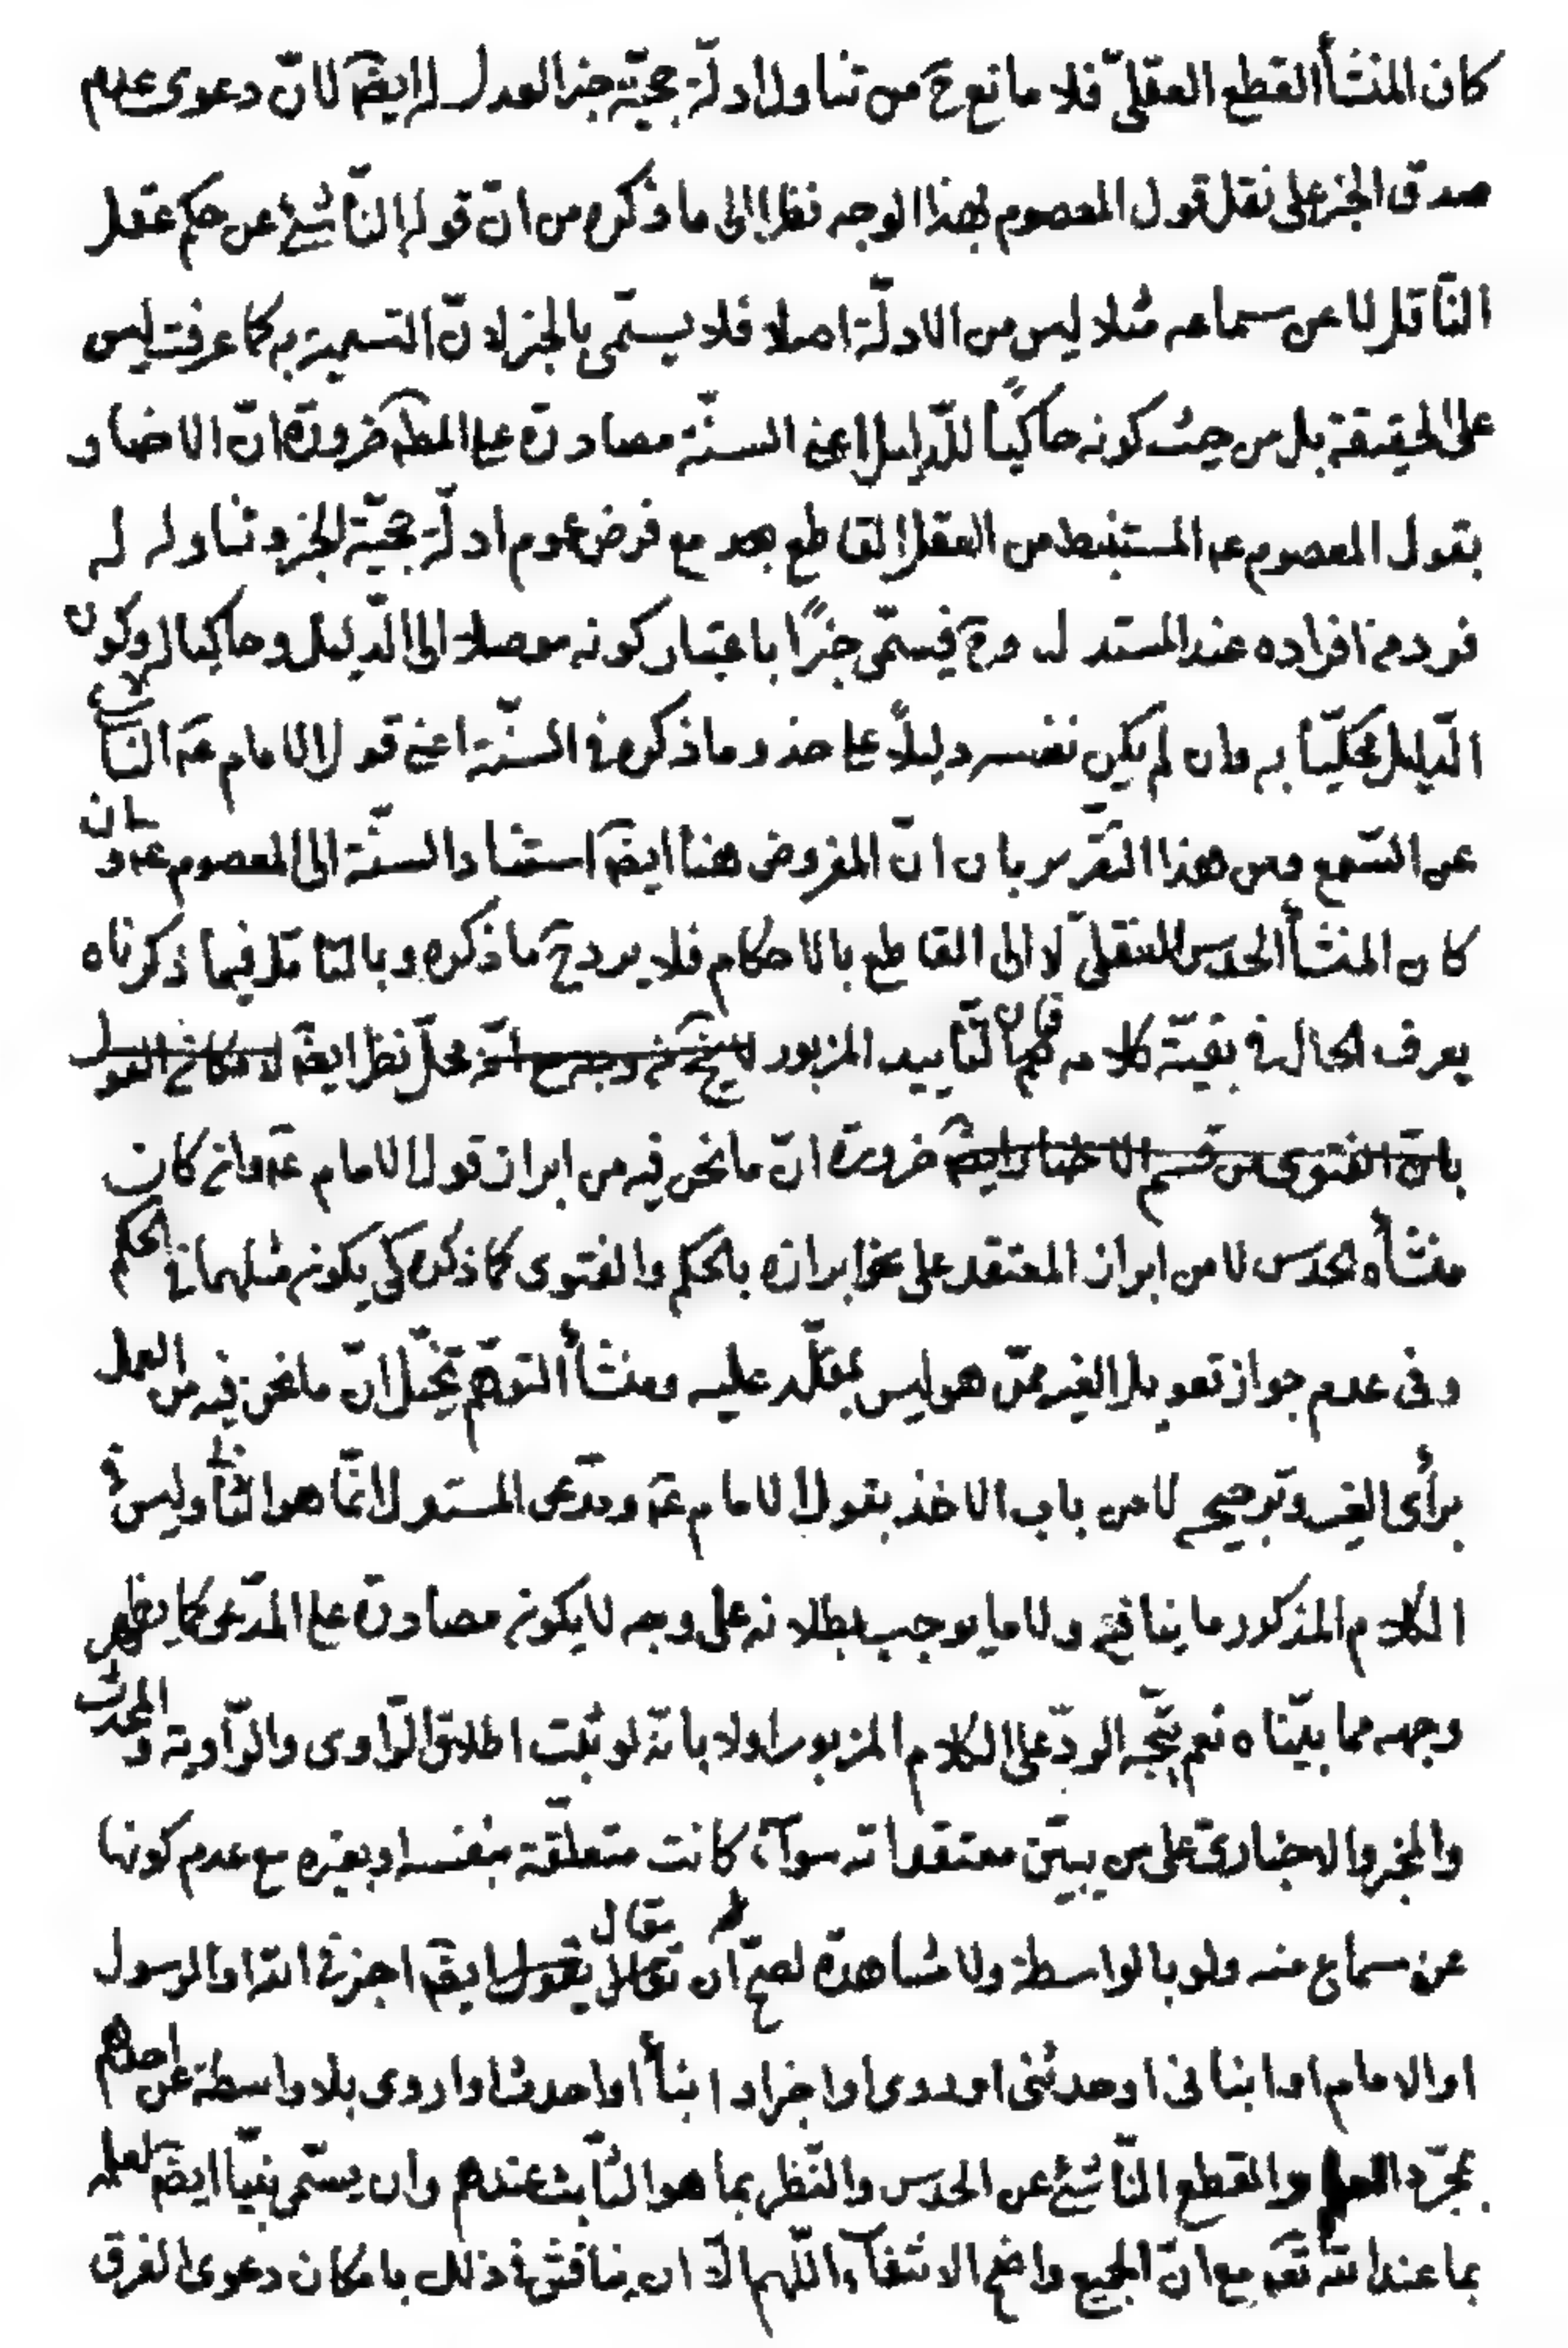 كان المنشأ القطع العقلىّ فلا مانع ح من تناول ادلّة حجيّة خبر العدل له ايضا لانّ دعوى عدم
صدق الخبر على نقل قول المعصوم بهذا الوجه نظرا الى ما ذكره من انّ قوله النّاشئ عن حكم عقل
النّاقل لا عن سماعه مثلا ليس من الادلّة اصلا فلا يسمّى بالخبر لانّ التسمية به كما عرفت ليس
على الحقيقة بل من حيث كونه حاكيًا للدّليل اعنى السنّة مصادرة على المط ضرورة انّ الاخبار
بقول المعصوم ع المستنبط من العقل القاطع بعد مع فرض عموم ادلّة حجيّة الخبر وتناوله له
فرد من افراده عند المستدل وح فيسمّى خبرًا باعتبار كونه موصلا الى الدّليل وحاكيا له وكون
الدّليل محكيّا به وان لم يكن نفسه دليلًا على حذو ما ذكره فى السنّة اعنى قول الامام ع النّاشئ
عن السّمع ومن هذا التّقرير بان انّ المفروض هنا ايضا استناد السنّة الى المعصوم ع وان
كان المنشأ الحدس للنقلىّ لا الى القاطع بالاحكام فلا يرد ح ما ذكره وبالتامّل فيما ذكرناه
يعرف الحال فى بقيّة كلامه فان التّاييد المزبور محلّ نظر ايضا
ضرورة انّ ما نحن فيه من ابراز قول الامام ع وان كان
منشأه الحدس لا من ابراز المعتقد على نحو ابرازه بالحكم والفتوى كما ذكره كى يكون مثلهما فى الحكم
وفى عدم جواز تعويل الغير ممّن هو ليس بمقلّد عليه ومنشأ التوهّم تخيّل انّ ما نحن فيه من العمل
برأى الغير وترجيحه لا من باب الاخذ بقول الامام ع ومدّعى المستدل انّما هو الثّانى وليس فى
الكلام المذكور ما ينافيه ولا ما يوجب بطلانه على وجه لا يكون مصادرة على المدّعى كما يظهر
وجهه مما بيّناه نعم يتّجه الردّ على الكلام المزبور اولا بانّه لو ثبت اطلاق الرّاوى والرّاوية والمحدّث
والمخبر والاخبارىّ على من يبيّن معتقداته سوآء كانت متعلّقة بنفسه او بغيره مع عدم كونها
عن سماع منه ولو بالواسطة ولا مشاهدة لصحّ ان يقال ايضا اخبرنى اللّه او الرسول
او الامام او انبانى او حدثنى او روى او اخبر او انبأ او احدث او اروى بلا واسطة عن احدهم
بمجرّد العلم والقطع النّاشئ عن الحدس والنّظر بما هو الثّابت عندهم وان يسمّى نبيّا ايضا لعلمه
بما عند اللّه تعه مع انّ الجميع واضح الانتفآء اللّهم الّا ان يناقش فى ذلك بامكان دعوى الفرق